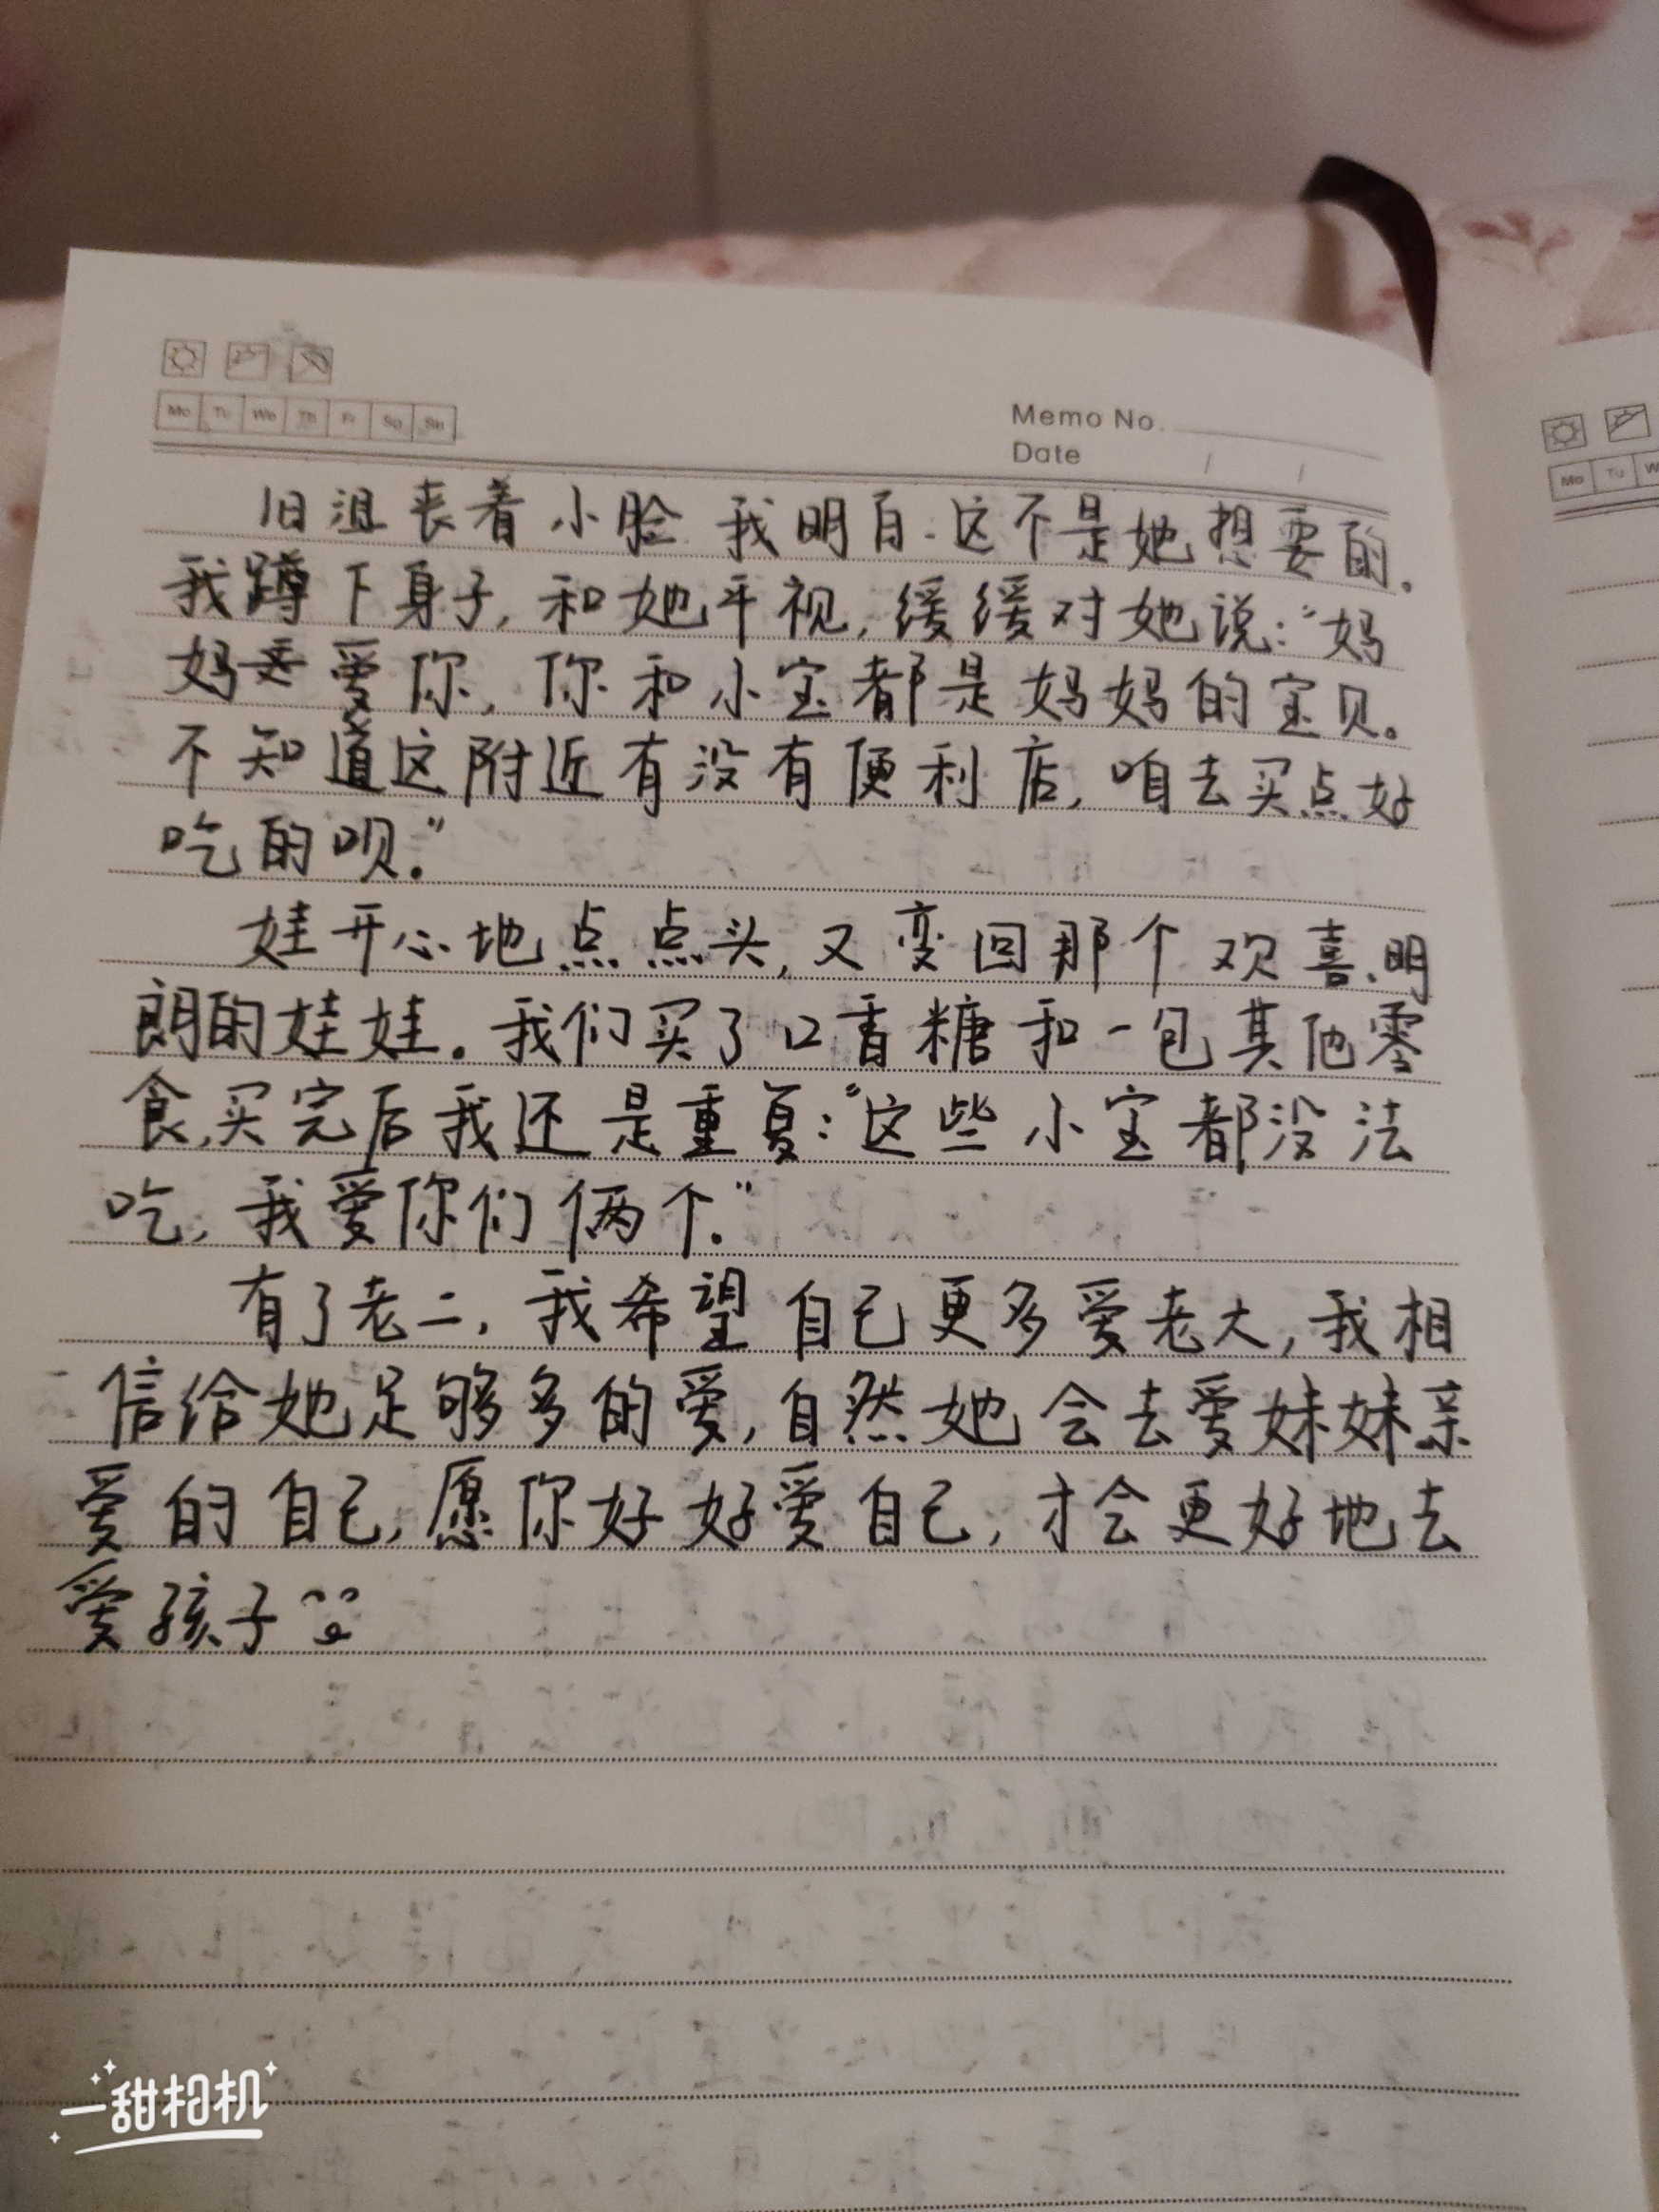 Mo Tu We Th Fr Sa Su
Memo No.
Date / /
旧沮丧着小脸 我明白.这不是她想要的.
我蹲下身子,和她平视,缓缓对她说:“妈
妈爱你,你和小宝都是妈妈的宝贝。
不知道这附近有没有便利店,咱去买点好
吃的呗.”
娃开心地点点头,又变回那个欢喜、明
朗的娃娃。我们买了口香糖和一包其他零
食,买完后我还是重复:“这些小宝都没法
吃,我爱你们俩个.”
有了老二,我希望自己更多爱老大,我相
信给她足够多的爱,自然她会去爱妹妹亲
爱的自己,愿你好好爱自己,才会更好地去
爱孩子
Mo Tu W
一甜相机